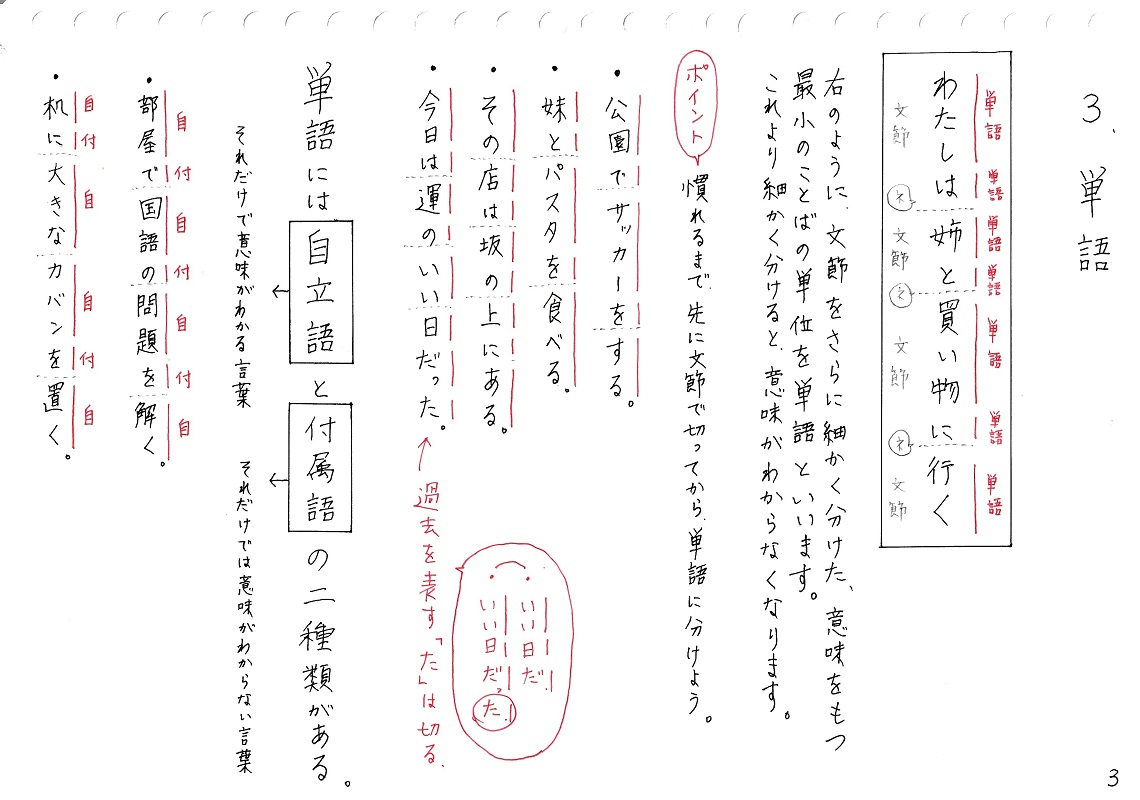 3、単語
単語 単語 単語 単語 単語 単語 単語
わたしは姉と買い物に行く
文節 ネ 文節 ネ 文節 ネ 文節
右のように、文節をさらに細かく分けた、意味をもつ
最小のことばの単位を単語といいます。
これより細かく分けると、意味がわからなくなります。
ポイント
慣れるまで、先に文節で切ってから、単語に分けよう。
・公園でサッカーをする。
・妹とパスタを食べる。
・その店は坂の上にある。
・今日は運のいい日だった。
←過去を表す「た」は切る.
・いい日だ.
・いい日だった.
単語には自立語と付属語の二種類がある。
それだけで意味がわかる言葉
それだけでは意味がわからない言葉
自 付 自 付 自 付 自
・部屋で国語の問題を解く。
自 付 自 自 付 自
・机に大きなカバンを置く。
3